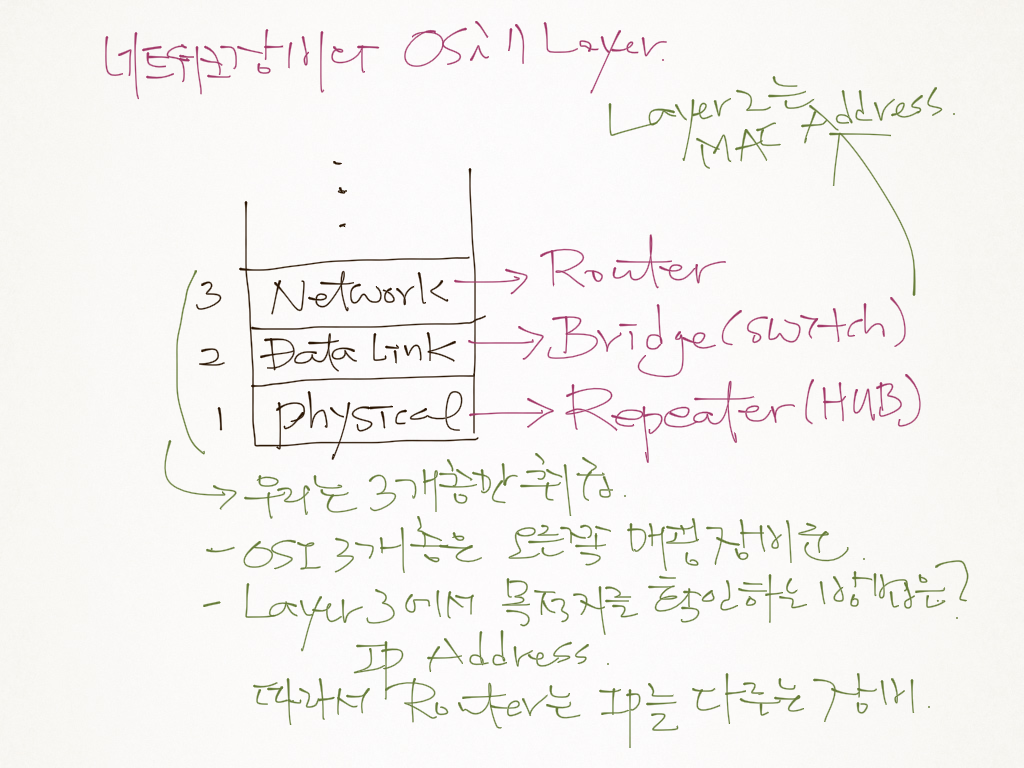 네트워크장비와 OSi 7 Layer.
Layer 2는
MAC Address.
3 Network → Router
2 Data Link → Bridge(switch)
1 physical → Repeater(HUB)
→ 우리는 3개층만 취급.
- OSI 3개층은 오른쪽 매핑 장비
- Layer 3에서 목적지를 확인하는 방법은?
IP Address.
따라서 Router는 IP를 다루는 장비.